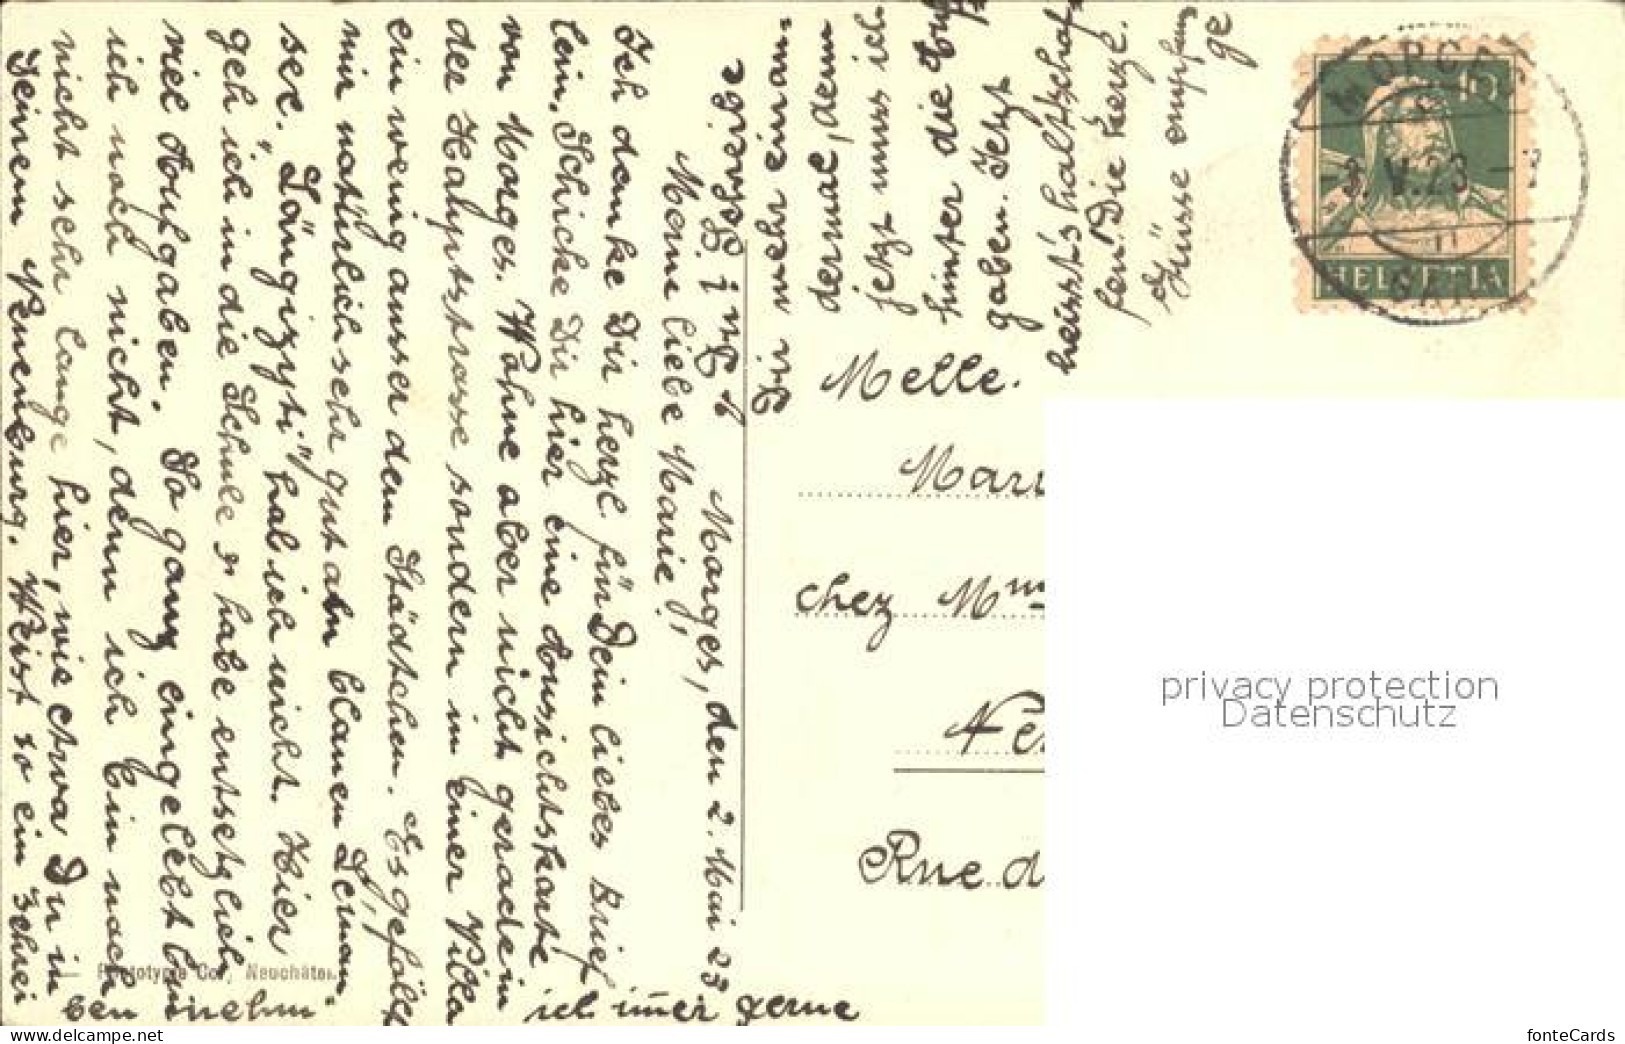 Morges, den 2. Mai 23
Meine liebe Marie!
Ich danke Dir herzl. für Dein liebes Brief
lein. Schicke Dir hier eine Aussichtskarte
von Morges. Wohne aber nicht gerade in
der Hauptstrasse sondern in einer Villa
ein wenig ausser dem Städtchen. Es gefällt
mir natürlich sehr gut am blauen Léman
see. "Längizyti" hab ich nicht. Hier
geh ich in die Schule & habe entsetzlich
viel Aufgaben. So ganz eingelebt bin
ich noch nicht, denn ich bin noch
nicht sehr lange hier, wie etwa Du in
Deinem Neuenburg. Weist so ein Schrei
ben nehm ich immer gerne
Du mehr einan
dermal, denn
jetzt muss ich
hinter die Auf
gaben. Jetzt
heisst's haltschaf
fen! Die herze.
Grüsse empfan
ge
Melle.
Mari
chez Mme
Ne
Rue d
MORGES
-3.V.23-
10
HELVETIA
Phototypie Co., Neuchâtel
privacy protection
Datenschutz
fonteCards